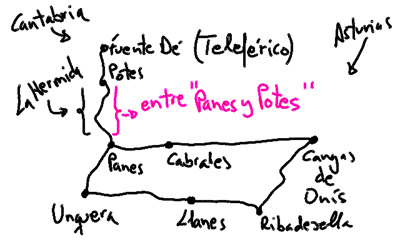 Cantabria
Fuente Dé (Teleférico)
Asturias
Potes
La Hermida
entre "Panes y Potes"
Panes
Cabrales
Cangas
de
Onís
Unquera
Llanes
Ribadesella